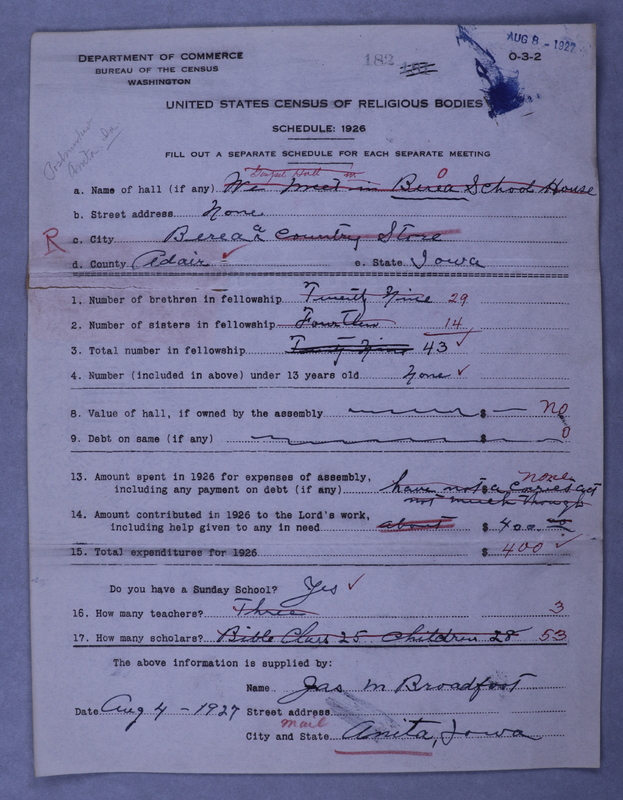 DEPARTMENT OF COMMERCE
BUREAU OF THE CENSUS
WASHINGTON
182
AUG 8 - 1927
O-3-2
UNITED STATES CENSUS OF RELIGIOUS BODIES
SCHEDULE: 1926
FILL OUT A SEPARATE SCHEDULE FOR EACH SEPARATE MEETING
Postmarked
Anita Ia
a. Name of hall (if any) We meet in Berea School House
b. Street address None
R c. City Berea a Country Store
d. County Adair ✓ e. State Iowa
1. Number of brethren in fellowship Twenty Nine 29
2. Number of sisters in fellowship 14
3. Total number in fellowship Twenty Nine 43 ✓
4. Number (included in above) under 13 years old None ✓
8. Value of hall, if owned by the assembly $ — No
9. Debt on same (if any) $ 0
13. Amount spent in 1926 for expenses of assembly, None
including any payment on debt (if any) have not a $ correct act
not much though
14. Amount contributed in 1926 to the Lord's work,
including help given to any in need about $ 400
15. Total expenditures for 1926 $ 400 ✓
Do you have a Sunday School? Yes ✓
16. How many teachers? Three 3
17. How many scholars? Bible Class 25 Children 28 53
The above information is supplied by:
Name Jas M Broadfoot
Date Aug 4 - 1927 Street address
mail
City and State Anita, Iowa